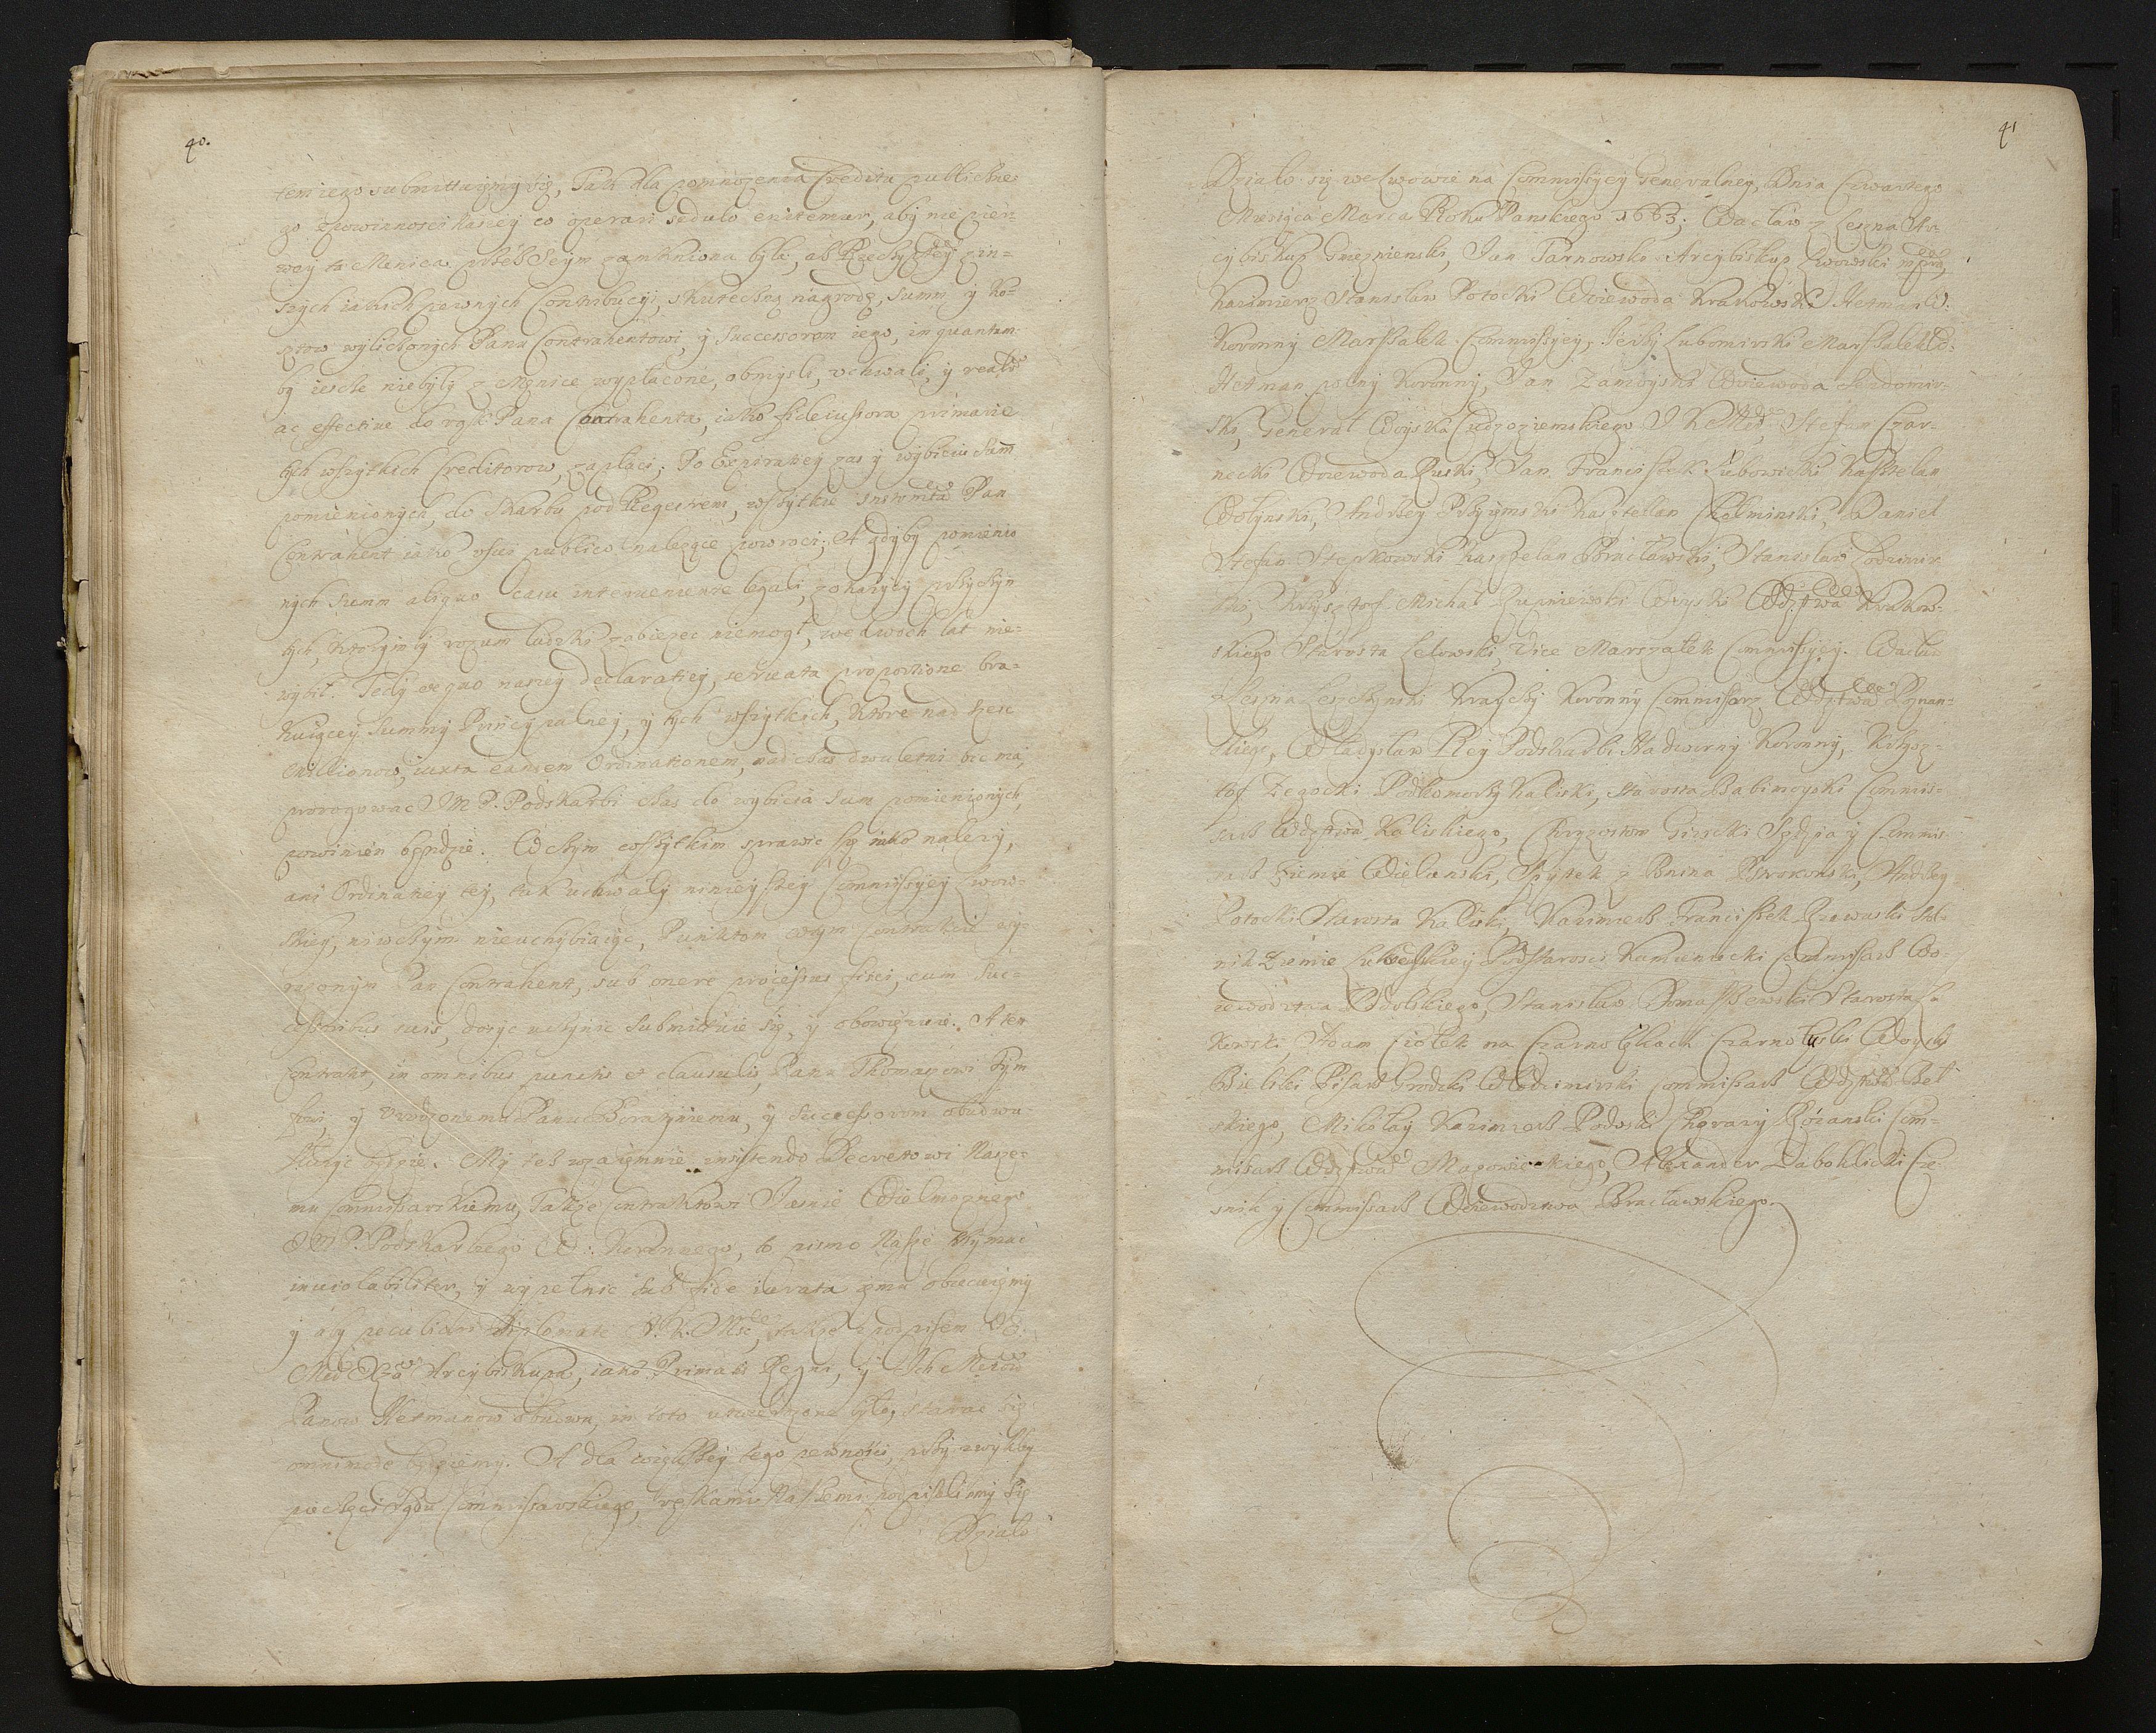 40.
tem iego submittuiemy się, Tak dla pomnożenia Creditu publiczne-
go z powinnosci naszey co operari sedulo enitemur, aby nie pier-
wey ta Menica przed Seym zamkniona była, aż Rzeczptey z in-
szych iakich pewnych Contribucyi, skuteczną nagrodę, summ y ko-
sztow wyliczonych Panu Contrahentowi, y Successorom iego, in quantum
by ieszcze niebyły z Mennice wypłacone, obmysli, uchwali, y realr
ac effective do rąk Pana Contrahenta, iako fideiussora primarie
tych wszytkich Creditorow, zapłaci. Po Expiratiey zas y wybiciu Sum
pomienionych, do Skarbu pod Regestrem, wszytkie Instrmta Pan
Contrahent iako usui publico nalezące powroci; A gdyby pomienio
nych Summ aliquo casu interveniente legali, z oney przyczyn
tych, ktorymby rozum ludzki zabiezec niemogł, we dwoch lat nie-
wybił. Tedy ex quo naszey declaratiey, servata proportione bra-
kuiącey Summy Principalney, y tych wszytkich, ktore nad szesc
Millionow, iuxta eandem Ordinationem, nad czas dwuletni bic ma,
prorogowac IM P. Podskarbi czas do wybicia Sum pomienionych
powinien będzie. W czym wszytkim sprawic się iako nalezy,
ani Ordinatiey tey, tak uchwały ninieyszey Commissyey Lwow-
skiey, niwczym nieuchybiaiąc, Punktom w tym Contrakcie wy-
razonym Pan Contrahent, sub onere processus fisci, cum suc-
cessoribus suis, dosyc uczynic submittuie się, y obowięzuie. A ten
Contrakt, in omnibus punctis et clausulis, Panu Thomaszowi Tym
fowi, y Urodzonemu Panu Boratyniemu, y Successorom obudwu-
słuzyc będzie. My tez wzaiemnie insistendo Decretowi Nasze-
mu Commissarskiemu, Takze Contraktowi Jasnie Wielmoznego
IM P. Podskarbiego W. Koronnego, to pismo Nasze trzymac
inviolabiliter, y wypełnic sub fide iurata emu obiecuiemy
y aby peculiari Diplomate J. K. Msci, takze z podpisem
Arcybiskupa, iako Primatis Regni, y Ich Mciow
Panow Hetmanow obudwu, in toto utwierdzono było, starac się
omnimode będziemy. A dla większey tego pewnosci, przy zwykłey
pieczęci Sądu Commissarskiego, rękami Naszemi podpisalismy się
Działo
41
Działo się we Lwowie na Commissyey Generalney, Dnia Czwartego
Miesiąca Marca Roku Panskiego 1663; Wacław z Leszna Ar
cybiskup Gnieznienski, Jan Tarnowski Arcybiskup Lwowski mprp,
Kazimierz Stanisław Potocki Woiewoda Krakowski Hetman W.
Koronny Marszałek Commissyey, Jerzy Lubomirski Marszałek W.
Hetman polny Koronny, Jan Zamoyski Woiewoda Sendomir-
ski, Generał Woyska Cudzoziemskiego J K Mci, Stefan Czar-
necki Woiewoda Ruski, Jan Franciszek Lubowicki Kasztelan
Wołynski, Andrzey Przyiemski Kasztelan Chełminski, Daniel
Stefan Stepkowski Kasztelan Bracławski, Stanisław
ski, Krzysztof Michał Woyski Wdztwa Krakow-
skiego Starosta Lelowski, Vice Marszałek Commissyey. Wacław
z Leszna Leszczynski Krayczy Koronny Commissarz Wdztwa Poznan-
skiego, Władysław Rey Podskarbi Nadworny Koronny, Krzysz-
tof Zegocki Podkomorzy Kaliski, Starosta Babimoyski Commis-
sarz Wdztwa Kaliskiego, Chryzostom Gierzki Sędzia y Commis-
sarz Ziemie Wielunski, Spytek z Bnina Pstrokonski, Andrzey
Potocki Starosta Kaliski, Kazimierz Franciszek
nik Ziemie Podstarosci Kamieniecki Commissarz Wo-
iewodztwa Podolskiego, Stanisław Domaszewski Starosta Łu
kowski, Adam Ciołek na Czarnołozkach Czarnołuski Woyski
Bielski Pisarz Grodzki Włodzimirski Commissarz Wdztwa Beł
skiego, Mikołay Kazimierz Podoski Chorązy Rożanski Com-
missarz Wdztwa Mazowieckiego, Alexander Zaboklicki Cze
snik y Commissarz Woiewodztwa Bracławskiego.